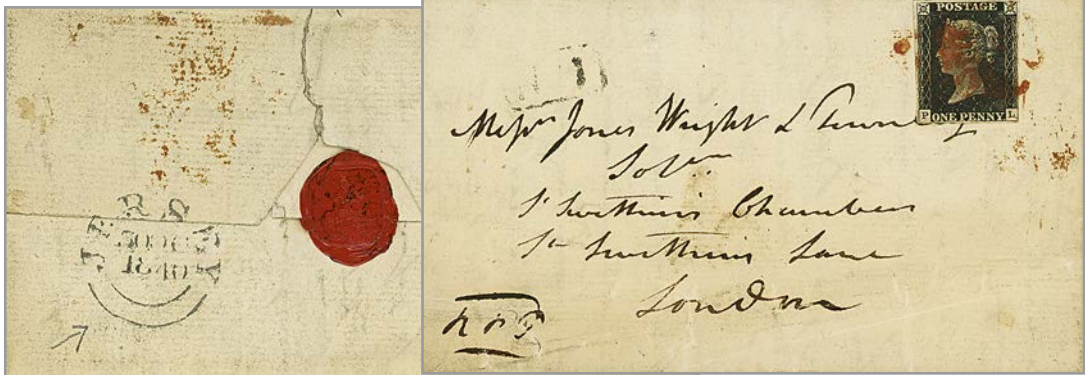 JERSEY
1840
POSTAGE
P ONE PENNY L
Messrs Jones Wright &
Solrs
St Swithins Chambers
St Swithins Lane
London